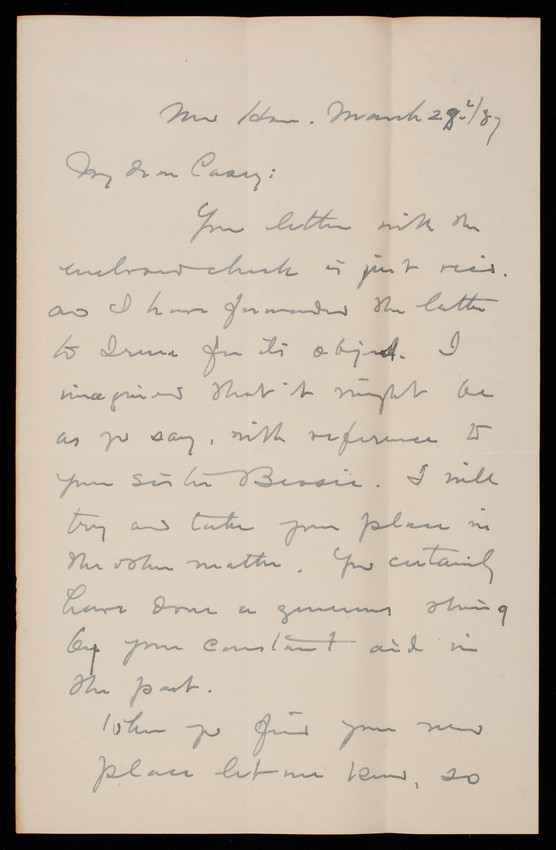 New Haven. March 29th/87
My dear Casey:
Your letter with the
enclosed check is just recd.
and I have forwarded the latter
to Irene for its object. I
imagined that it might be
as you say, with reference to
your sister Bessie. I will
try and take your place in
the other matter. You certainly
have done a generous thing
by your constant aid in
the past.
When you find your new
place let me know, so